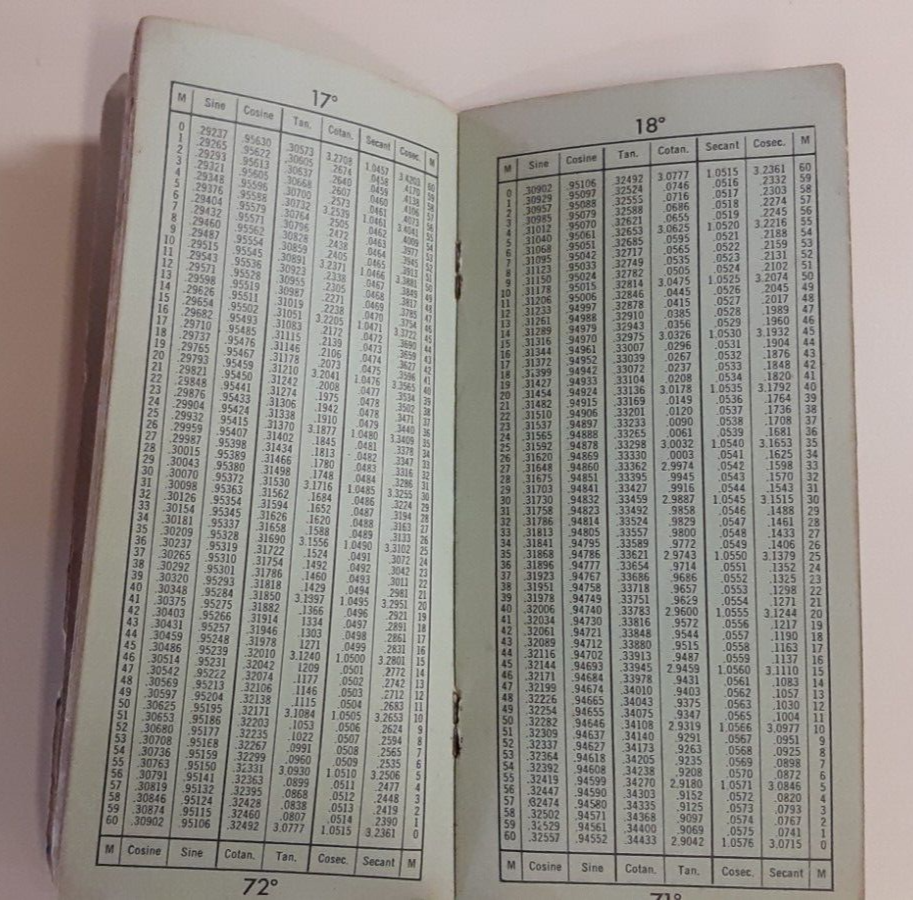 17°
M Sine Cosine Tan. Cotan. Secant Cosec. M
0 .29237 .95630 .30573 3.2708 1.0457 3.4203 60
1 .29265 .95622 .30605 .2674 .0458 .4170 59
2 .29293 .95613 .30637 .2640 .0459 .4138 58
3 .29321 .95605 .30668 .2607 .0460 .4106 57
4 .29348 .95596 .30700 .2573 .0461 .4073 56
5 .29376 .95588 .30732 3.2539 1.0461 3.4041 55
6 .29404 .95579 .30764 .2505 .0462 .4009 54
7 .29432 .95571 .30796 .2472 .0463 .3977 53
8 .29460 .95562 .30828 .2438 .0464 .3945 52
9 .29487 .95554 .30859 .2405 .0465 .3913 51
10 .29515 .95545 .30891 3.2371 1.0466 3.3881 50
11 .29543 .95536 .30923 .2338 .0467 .3849 49
12 .29571 .95528 .30955 .2305 .0468 .3817 48
13 .29598 .95519 .30987 .2271 .0469 .3785 47
14 .29626 .95511 .31019 .2238 .0470 .3754 46
15 .29654 .95502 .31051 3.2205 1.0471 3.3722 45
16 .29682 .95493 .31083 .2172 .0472 .3690 44
17 .29710 .95485 .31115 .2139 .0473 .3659 43
18 .29737 .95476 .31146 .2106 .0474 .3627 42
19 .29765 .95467 .31178 .2073 .0475 .3596 41
20 .29793 .95459 .31210 3.2041 1.0476 3.3565 40
21 .29821 .95450 .31242 .2008 .0477 .3534 39
22 .29848 .95441 .31274 .1975 .0478 .3502 38
23 .29876 .95433 .31306 .1942 .0478 .3471 37
24 .29904 .95424 .31338 .1910 .0479 .3440 36
25 .29932 .95415 .31370 3.1877 1.0480 3.3409 35
26 .29959 .95407 .31402 .1845 .0481 .3378 34
27 .29987 .95398 .31434 .1813 .0482 .3347 33
28 .30015 .95389 .31466 .1780 .0483 .3316 32
29 .30043 .95380 .31498 .1748 .0484 .3286 31
30 .30070 .95372 .31530 3.1716 1.0485 3.3255 30
31 .30098 .95363 .31562 .1684 .0486 .3224 29
32 .30126 .95354 .31594 .1652 .0487 .3194 28
33 .30154 .95345 .31626 .1620 .0488 .3163 27
34 .30181 .95337 .31658 .1588 .0489 .3133 26
35 .30209 .95328 .31690 3.1556 1.0490 3.3102 25
36 .30237 .95319 .31722 .1524 .0491 .3072 24
37 .30265 .95310 .31754 .1492 .0492 .3042 23
38 .30292 .95301 .31786 .1460 .0493 .3011 22
39 .30320 .95293 .31818 .1429 .0494 .2981 21
40 .30348 .95284 .31850 3.1397 1.0495 3.2951 20
41 .30375 .95275 .31882 .1366 .0496 .2921 19
42 .30403 .95266 .31914 .1334 .0497 .2891 18
43 .30431 .95257 .31946 .1303 .0498 .2861 17
44 .30459 .95248 .31978 .1271 .0499 .2831 16
45 .30486 .95239 .32010 3.1240 1.0500 3.2801 15
46 .30514 .95231 .32042 .1209 .0501 .2772 14
47 .30542 .95222 .32074 .1177 .0502 .2742 13
48 .30569 .95213 .32106 .1146 .0503 .2712 12
49 .30597 .95204 .32138 .1115 .0504 .2683 11
50 .30625 .95195 .32171 3.1084 1.0505 3.2653 10
51 .30653 .95186 .32203 .1053 .0506 .2624 9
52 .30680 .95177 .32235 .1022 .0507 .2594 8
53 .30708 .95168 .32267 .0991 .0508 .2565 7
54 .30736 .95159 .32299 .0960 .0509 .2535 6
55 .30763 .95150 .32331 3.0930 1.0510 3.2506 5
56 .30791 .95141 .32363 .0899 .0511 .2477 4
57 .30819 .95132 .32395 .0868 .0512 .2448 3
58 .30846 .95124 .32428 .0838 .0513 .2419 2
59 .30874 .95115 .32460 .0807 .0514 .2390 1
60 .30902 .95106 .32492 3.0777 1.0515 3.2361 0
M Cosine Sine Cotan. Tan. Cosec. Secant M
72°
18°
M Sine Cosine Tan. Cotan. Secant Cosec. M
0 .30902 .95106 .32492 3.0777 1.0515 3.2361 60
1 .30929 .95097 .32524 .0746 .0516 .2332 59
2 .30957 .95088 .32555 .0716 .0517 .2303 58
3 .30985 .95079 .32588 .0686 .0518 .2274 57
4 .31012 .95070 .32621 .0655 .0519 .2245 56
5 .31040 .95061 .32653 3.0625 1.0520 3.2216 55
6 .31068 .95051 .32685 .0595 .0521 .2188 54
7 .31095 .95042 .32717 .0565 .0522 .2159 53
8 .31123 .95033 .32749 .0535 .0523 .2131 52
9 .31150 .95024 .32782 .0505 .0524 .2102 51
10 .31178 .95015 .32814 3.0475 1.0525 3.2074 50
11 .31206 .95006 .32846 .0445 .0526 .2045 49
12 .31233 .94997 .32878 .0415 .0527 .2017 48
13 .31261 .94988 .32910 .0385 .0528 .1989 47
14 .31289 .94979 .32943 .0356 .0529 .1960 46
15 .31316 .94970 .32975 3.0326 1.0530 3.1932 45
16 .31344 .94961 .33007 .0296 .0531 .1904 44
17 .31372 .94952 .33039 .0267 .0532 .1876 43
18 .31399 .94942 .33072 .0237 .0533 .1848 42
19 .31427 .94933 .33104 .0208 .0534 .1820 41
20 .31454 .94924 .33136 3.0178 1.0535 3.1792 40
21 .31482 .94915 .33169 .0149 .0536 .1764 39
22 .31510 .94906 .33201 .0120 .0537 .1736 38
23 .31537 .94897 .33233 .0090 .0538 .1708 37
24 .31565 .94888 .33265 .0061 .0539 .1681 36
25 .31592 .94878 .33298 3.0032 1.0540 3.1653 35
26 .31620 .94869 .33330 .0003 .0541 .1625 34
27 .31648 .94860 .33362 2.9974 .0542 .1598 33
28 .31675 .94851 .33395 .9945 .0543 .1570 32
29 .31703 .94841 .33427 .9916 .0544 .1543 31
30 .31730 .94832 .33459 2.9887 1.0545 3.1515 30
31 .31758 .94823 .33492 .9858 .0546 .1488 29
32 .31786 .94814 .33524 .9829 .0547 .1461 28
33 .31813 .94805 .33557 .9800 .0548 .1433 27
34 .31841 .94795 .33589 .9772 .0549 .1406 26
35 .31868 .94786 .33621 2.9743 1.0550 3.1379 25
36 .31896 .94777 .33654 .9714 .0551 .1352 24
37 .31923 .94767 .33686 .9686 .0552 .1325 23
38 .31951 .94758 .33718 .9657 .0553 .1298 22
39 .31978 .94749 .33751 .9629 .0554 .1271 21
40 .32006 .94740 .33783 2.9600 1.0555 3.1244 20
41 .32034 .94730 .33816 .9572 .0556 .1217 19
42 .32061 .94721 .33848 .9544 .0557 .1190 18
43 .32089 .94712 .33880 .9515 .0558 .1163 17
44 .32116 .94702 .33913 .9487 .0559 .1137 16
45 .32144 .94693 .33945 2.9459 1.0560 3.1110 15
46 .32171 .94684 .33978 .9431 .0561 .1083 14
47 .32199 .94674 .34010 .9403 .0562 .1057 13
48 .32226 .94665 .34043 .9375 .0563 .1030 12
49 .32254 .94655 .34075 .9347 .0565 .1004 11
50 .32282 .94646 .34108 2.9319 1.0566 3.0977 10
51 .32309 .94637 .34140 .9291 .0567 .0951 9
52 .32337 .94627 .34173 .9263 .0568 .0925 8
53 .32364 .94618 .34205 .9235 .0569 .0898 7
54 .32392 .94608 .34238 .9208 .0570 .0872 6
55 .32419 .94599 .34270 2.9180 1.0571 3.0846 5
56 .32447 .94590 .34303 .9152 .0572 .0820 4
57 .32474 .94580 .34335 .9125 .0573 .0793 3
58 .32502 .94571 .34368 .9097 .0574 .0767 2
59 .32529 .94561 .34400 .9069 .0575 .0741 1
60 .32557 .94552 .34433 2.9042 1.0576 3.0715 0
M Cosine Sine Cotan. Tan. Cosec. Secant M
71°